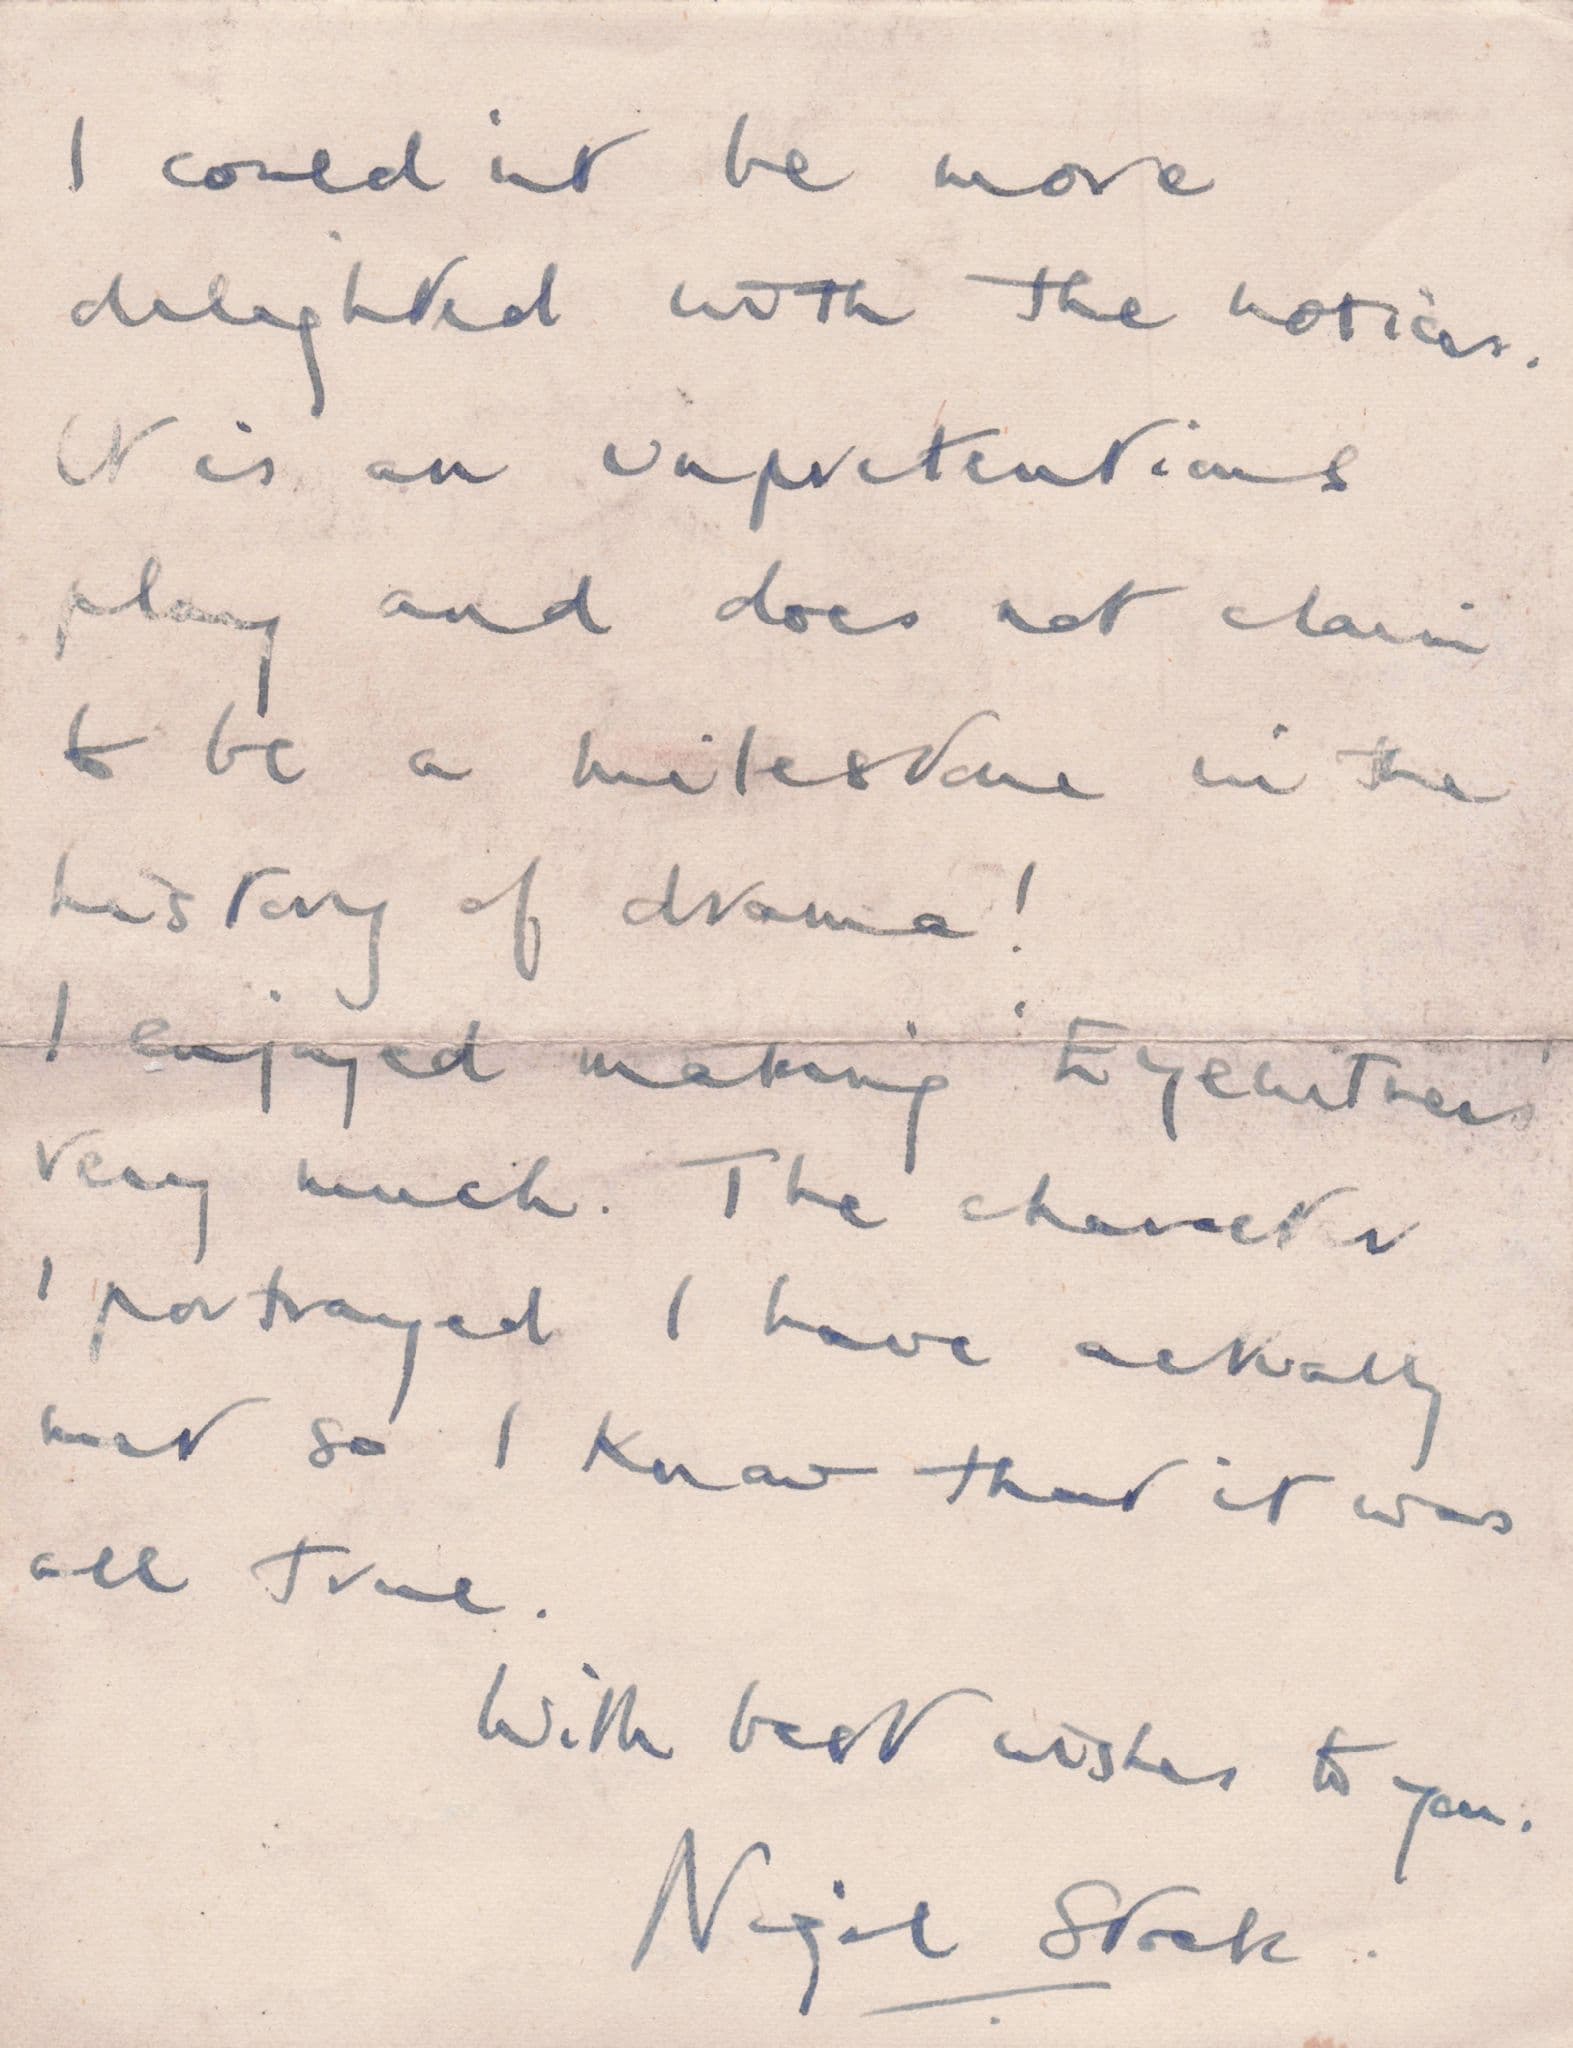 I could'nt be more
delighted with the notices.
It is an unpretentious
play and does not claim
to be a milestone in the
history of drama!
I enjoyed making 'Eyewitness'
very much. The character
I portrayed I have actually
met so I know that it was
all true.
With best wishes to you.
Nigel Stock.